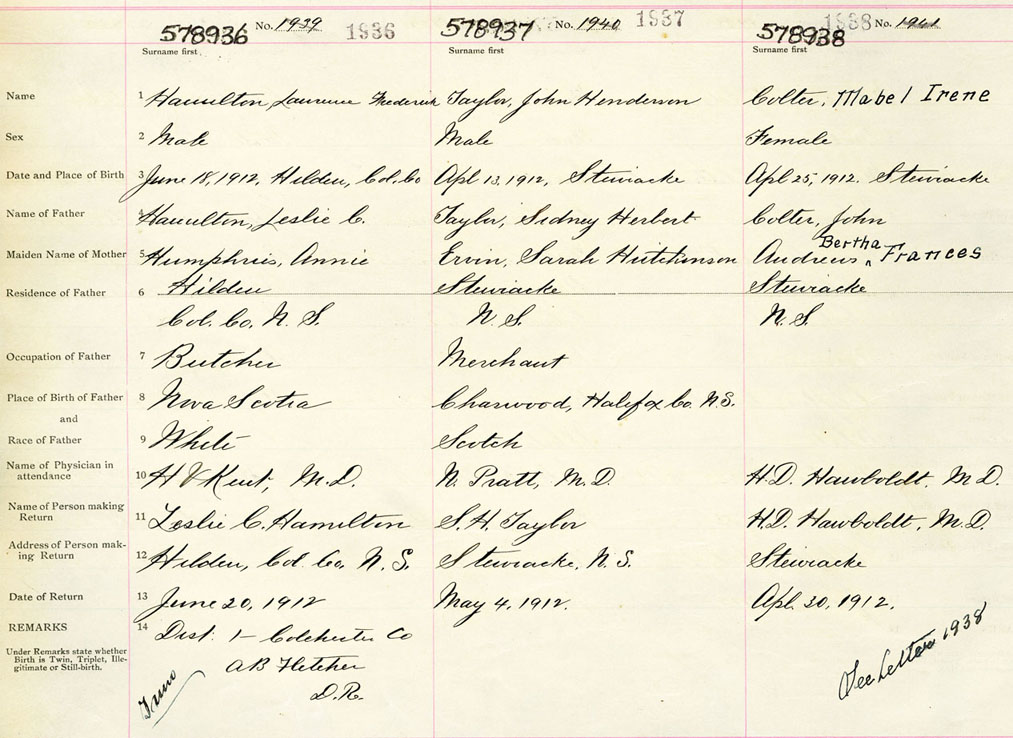 578936 No. 1939 1936 578937 No. 1940 1937 578938 1938 No. 1941
Surname first. Surname first Surname first
Name 1 Hamilton, Laurence Frederick Taylor, John Henderson Colter, Mabel Irene
Sex 2 Male Male Female
Date and Place of Birth 3 June 18, 1912, Hilden, Col. Co Apl 13, 1912, Stewiacke Apl 25, 1912. Stewiacke
Name of Father 4 Hamilton, Leslie C. Taylor, Sidney Herbert Colter, John
Bertha
Maiden Name of Mother 5 Humphris, Annie Ervin, Sarah Hutchinson Andrews ^ Frances
Residence of Father 6 Hilden Stewiacke Stewiacke
Col. Co, N. S. N. S. N. S.
Occupation of Father 7 Butcher Merchant
Place of Birth of Father 8 Nova Scotia Halifax Co. N.S.
and
Race of Father 9 White Scotch
Name of Physician in
attendance 10 H V Kent, M.D. N. Pratt, M.D. H.D. Hawboldt, M.D.
Name of Person making
Return 11 Leslie C. Hamilton S. H. Taylor H.D. Hawboldt, M.D.
Address of Person mak-
ing Return 12 Hilden, Col. Co, N. S. Stewiacke, N. S. Stewiacke
Date of Return 13 June 20, 1912 May 4, 1912. Apl. 30, 1912.
REMARKS 14 Dist. 1 - Colchester Co
Under Remarks state whether
Birth is Twin, Triplet, Ille-
gitimate or Still-birth.
AB Fletcher
D.R.
Truro
See Letter 1938